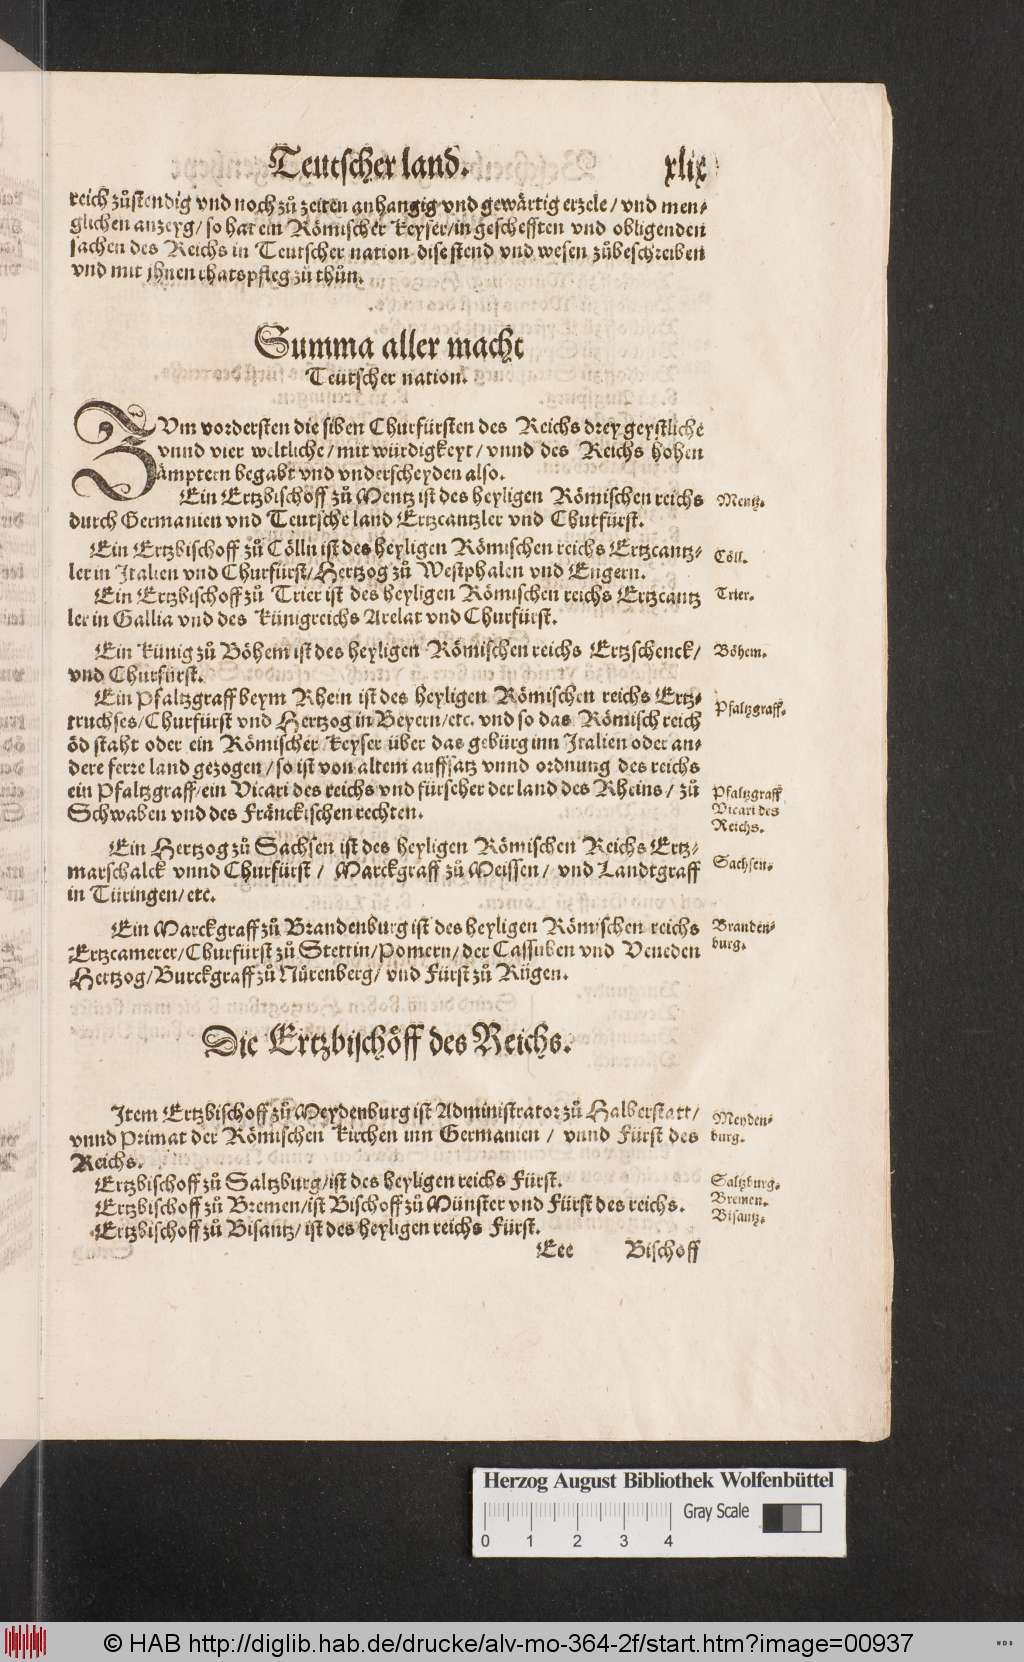 Teutscher land. xlix
reich zůstendig vnd noch zů zeiten anhangig vnd gewärtig erzele / vnd men⸗
glichen anzeyg / so hat ein Römischer Keyser / in geschefften vnd obligenden
sachen des Reichs in Teutscher nation dise stend vnd wesen zůbeschreiben
vnd mit jhnen rhatspfleg zů thůn.
Summa aller macht
Teutscher nation.
ZVm vordersten die siben Churfürsten des Reichs drey geystliche
vnnd vier weltliche / mit würdigkeyt / vnnd des Reichs hohen
ämptern begabt vnd vnderscheyden also.
Ein Ertzbischoff zů Mentz ist des heyligen Römischen reichs
Mentz.
durch Germanien vnd Teutsche land Ertzcantzler vnd Churfürst.
Ein Ertzbischoff zů Cölln ist des heyligen Römischen reichs Ertzcantz⸗
Cöll.
ler in Italien vnd Churfürst / Hertzog zů Westphalen vnd Engern.
Ein Ertzbischoff zů Trier ist des heyligen Römischen reichs Ertzcantz
Trier.
ler in Gallia vnd des Künigreichs Arelat vnd Churfürst.
Ein Künig zů Böhem ist des heyligen Römischen reichs Ertzschenck /
Böhem.
vnd Churfürst.
Ein Pfaltzgraff beym Rhein ist des heyligen Römischen reichs Ertz⸗
Pfaltzgraff.
truchses / Churfürst vnd Hertzog in Beyern / etc. vnd so das Römisch reich
öd staht oder ein Römischer Keyser über das gebürg inn Italien oder an⸗
dere ferre land gezogen / so ist von altem auffsatz vnnd ordnung des reichs
ein Pfaltzgraff / ein Vicari des reichs vnd fürseher der land des Rheins / zů
Pfaltzgraff
Vicari des
Reichs.
Schwaben vnd des Fränckischen rechten.
Ein Hertzog zů Sachsen ist des heyligen Römischen Reichs Ertz⸗
Sachsen.
marschalck vnnd Churfürst / Marckgraff zů Meissen / vnd Landtgraff
in Türingen / etc.
Ein Marckgraff zů Brandenburg ist des heyligen Römischen reichs
Branden⸗
burg.
Ertzcamerer / Churfürst zů Stettin / Pomern / der Cassuben vnd Veneden
Hertzog / Burckgraff zů Nůrenberg / vnd Fürst zů Rügen.
Die Ertzbischöff des Reichs.
Item Ertzbischoff zů Meydenburg ist Administrator zů Halberstatt /
Meyden⸗
burg.
vnnd Primat der Römischen Kirchen inn Germanien / vnnd Fürst des
Reichs.
Ertzbischoff zů Saltzburg / ist des heyligen reichs Fürst.
Saltzburg.
Ertzbischoff zů Bremen / ist Bischoff zů Münster vnd Fürst des reichs.
Bremen.
Ertzbischoff zů Bisantz / ist des heyligen reichs Fürst.
Bisantz.
Eee Bischoff
Herzog August Bibliothek Wolfenbüttel
Gray Scale
0 1 2 3 4
© HAB http://diglib.hab.de/drucke/alv-mo-364-2f/start.htm?image=00937